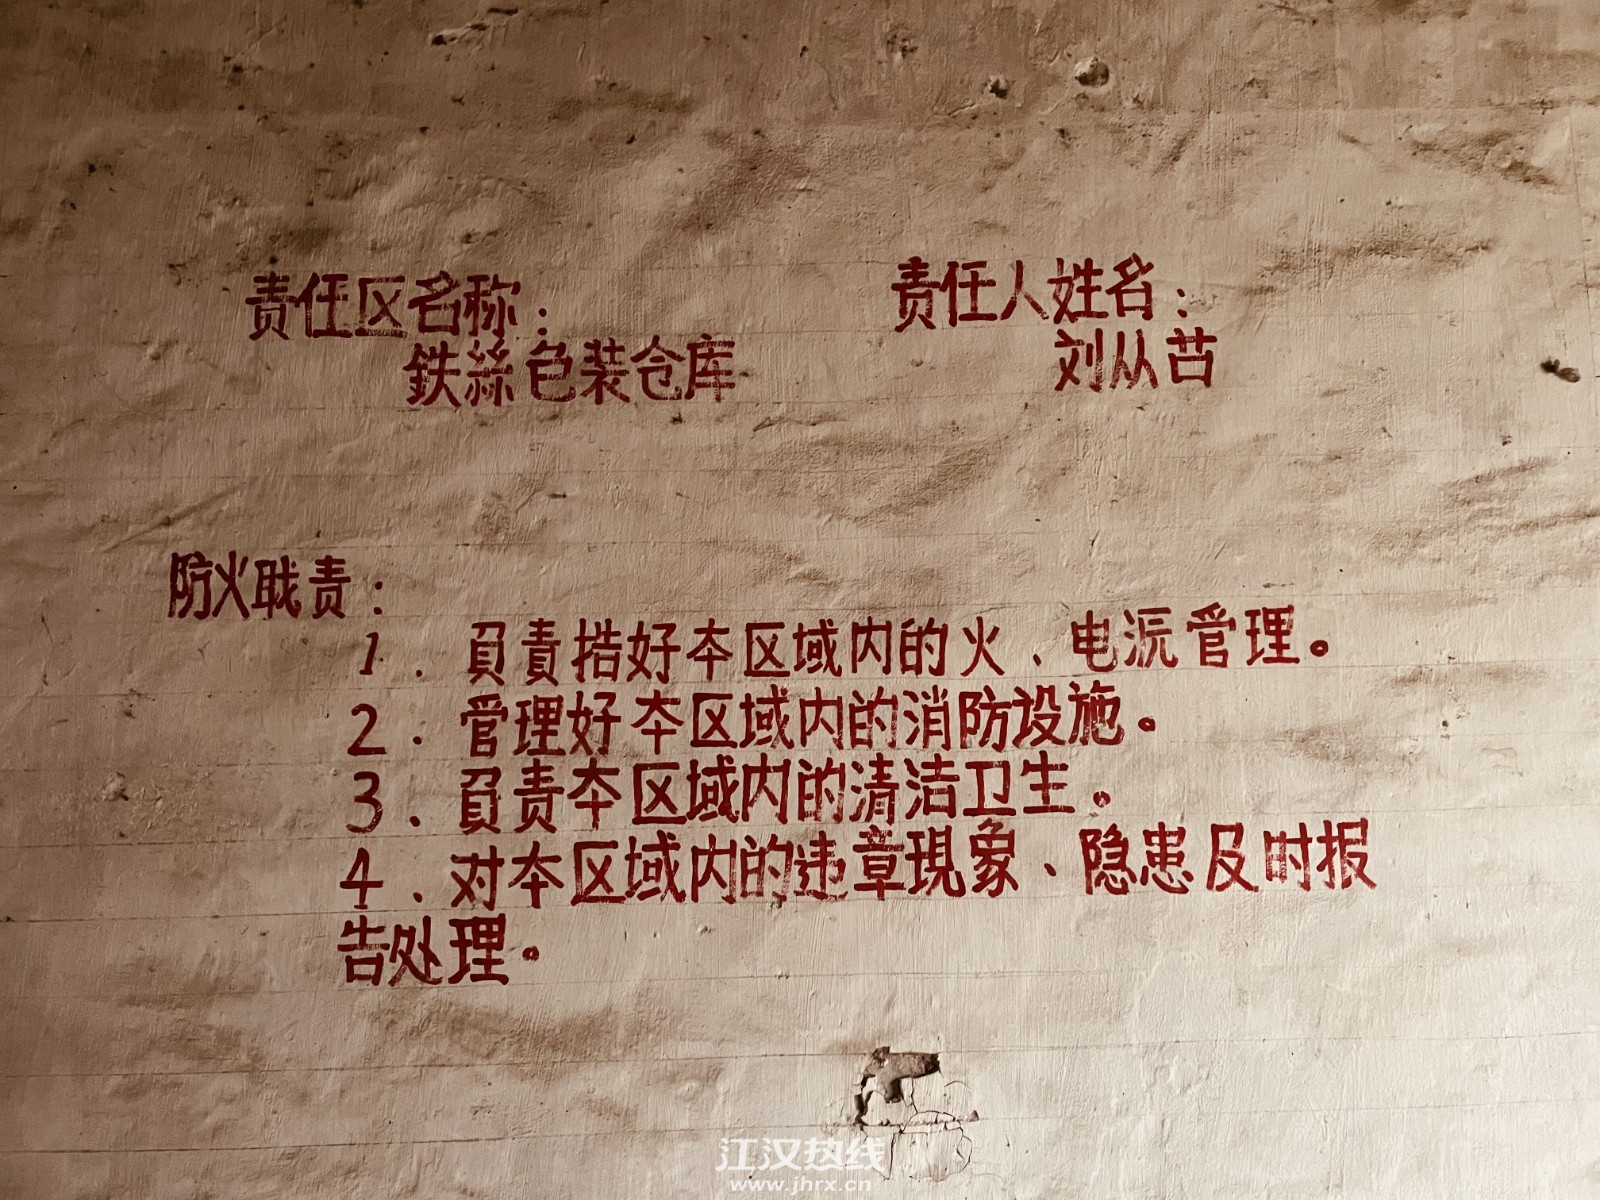 责任区名称：
鉄絲包装仓库
责任人姓名：
刘从苦
防火职责：
1．負責措好本区域内的火、电源管理。
2．管理好本区域内的消防设施。
3．負责本区域内的清洁卫生。
4．对本区域内的违章現象、隐患及时报
告处理。
江汉热线
www.jhrx.cn